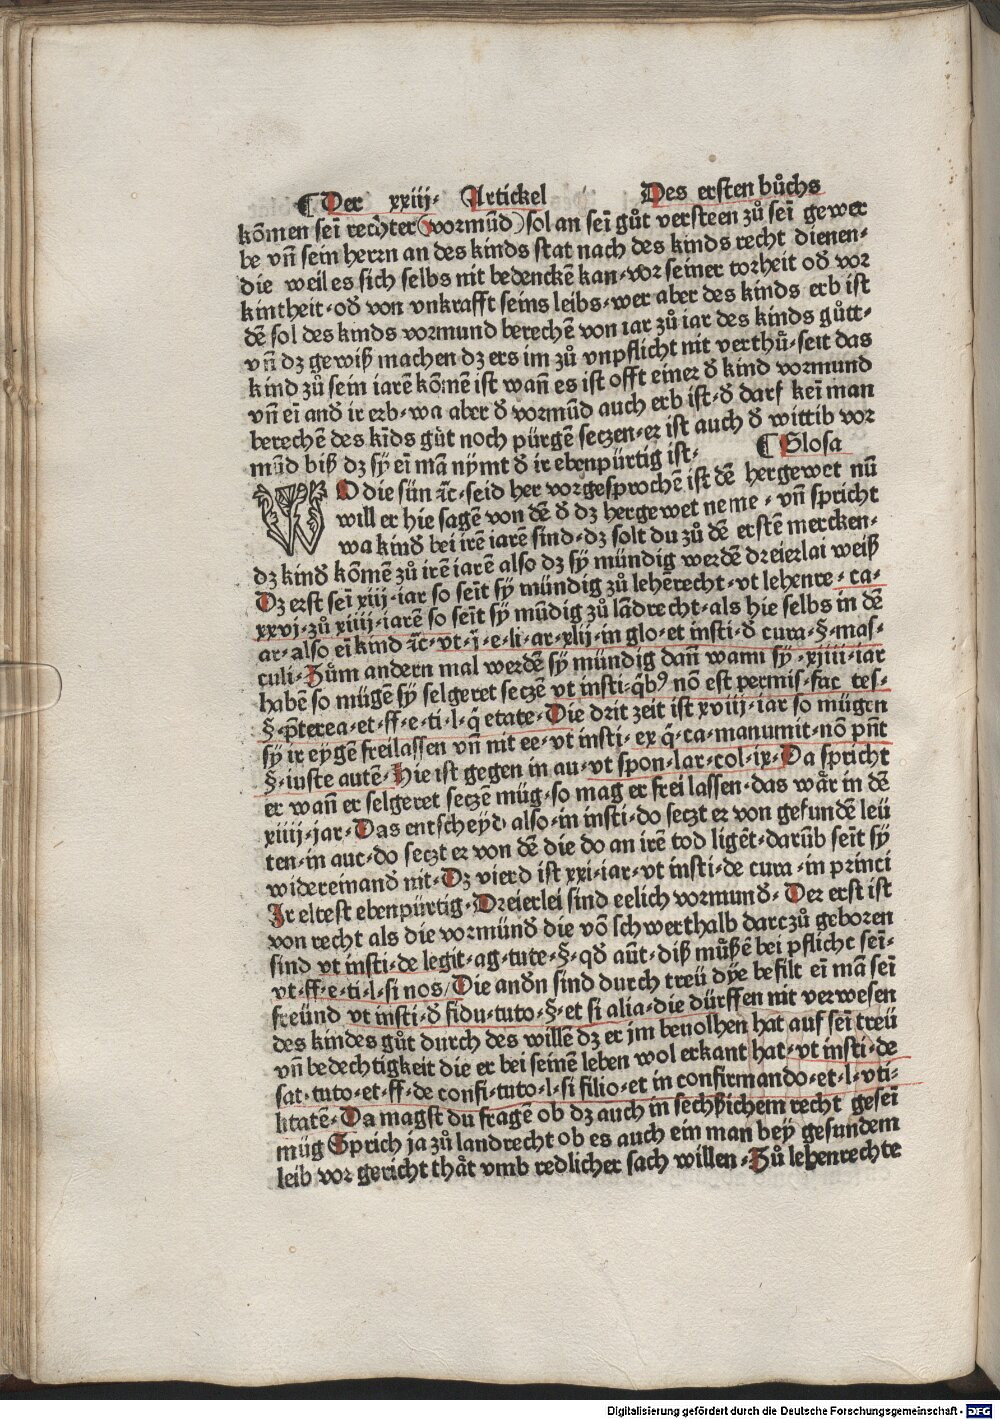 ¶ Der xxiij· Artickel Des ersten bůchs
kõmen sei rechter (vormũd) sol an sei gůt versteen zů sei gewer
be vñ sein herrn an des kinds stat nach des kinds recht dienen·
die weil es sich selbs nit bedenckẽ kan·vor seiner torheit od̕ vor
kintheit·od̕ von vnkrafft seins leibs·wer aber des kinds erb ist
dẽ sol des kinds vormund berechẽ von iar zů iar des kinds gůtt·
vñ dz gewiß machen dz ers im zů vnpflicht nit verthů·seit das
kind zů sein iarẽ kõmẽ ist wañ es ist offt einer d̕ kind vormund
vñ ei and̕ ir erb·wa aber d̕ vormũd auch erb ist·d̕ darf kei man
berechẽ des kĩds gůt noch pürgẽ seczen·er ist auch d̕ wittib vor
mũd biß dz sÿ ei mã nÿmt d̕ ir ebenpürtig ist· ¶ Glosa
WO die sün ꝛc·seid her vorgesprochẽ ist dẽ hergewet nũ
will er hie sagẽ von dẽ d̕ dz hergewet neme·vñ spricht
wa kind̕ bei irẽ iarẽ sind·dz solt du zů dẽ erstẽ mercken·
dz kind̕ kõmẽ zů irẽ iarẽ also dz sÿ mündig werdẽ dreierlai weiß
Dz erst sei xiij·iar so seit sÿ mündig zů lehẽrecht·vt lehenre·ca·
xxvj·zů xiiij·iarẽ so seit sÿ mũdig zů lãdrecht·als hie selbs in dẽ
ar·also ei kind ꝛc·vt·j·e·li·ar·xlij·in glo·et insti·d̕ cura·§·mas·
culi·Zům andern mal werdẽ sÿ mündig dañ wann sÿ·xjiii·iar
habẽ so mügẽ sÿ selgeret seczẽ vt insti·q̃bꝰ nõ est permis·fac tes·
§·p̃terea·et·ff·e·ti·l·q̃ etate·Die drit zeit ist xviij·iar so mügen
sÿ ir eygẽ freilassen vñ nit ee·vt insti·ex q̃·ca·manumit·nõ pñt
§·iuste autẽ·Hie ist gegen in au·vt spon·lar·col·ix·Da spricht
er wañ er selgeret seczẽ müg·so mag er frei lassen·das wår in dẽ
xiiij·jar·Das entscheyd also·in insti·do seczt er von gesundẽ leü
ten·in auc·do seczt er von dẽ die do an irẽ tod ligẽt·darũb seit sÿ
widereinand̕ nit·Dz vierd ist xxi·iar·vt insti·de cura·in princi
Ir eltest ebenpürtig·Dreierlei sind eelich vormund̕·Der erst ist
von recht als die vormünd̕ die võ schwerthalb darczů geboren
sind vt insti·de legit·ag·tute·§·qd̕ aũt·diß můßẽ bei pflicht sei·
vt·ff·e·ti·l·si nos/Die and̕n sind durch treü dÿe befilt ei mã sei
freünd vt insti·d̕ fidu·tuto·§·et si alia·die dürffen nit verwesen
des kindes gůt durch des willẽ dz er jm beuolhen hat auf sei treü
vñ bedechtigkeit die er bei seinẽ leben wol erkant hat·vt insti·de
sat·tuto·et·ff·de confi·tuto·l·si filio·et in confirmando·et·l·vti·
litatẽ·Da magst du fragẽ ob dz auch in sechßichem recht gesei
müg Sprich ja zů landrecht ob es auch ein man beÿ gesundem
leib vor gericht thåt vmb redlicher sach willen·Zů lehenrechte
Digitalisierung gefördert durch die Deutsche Forschungsgemeinschaft - DFG